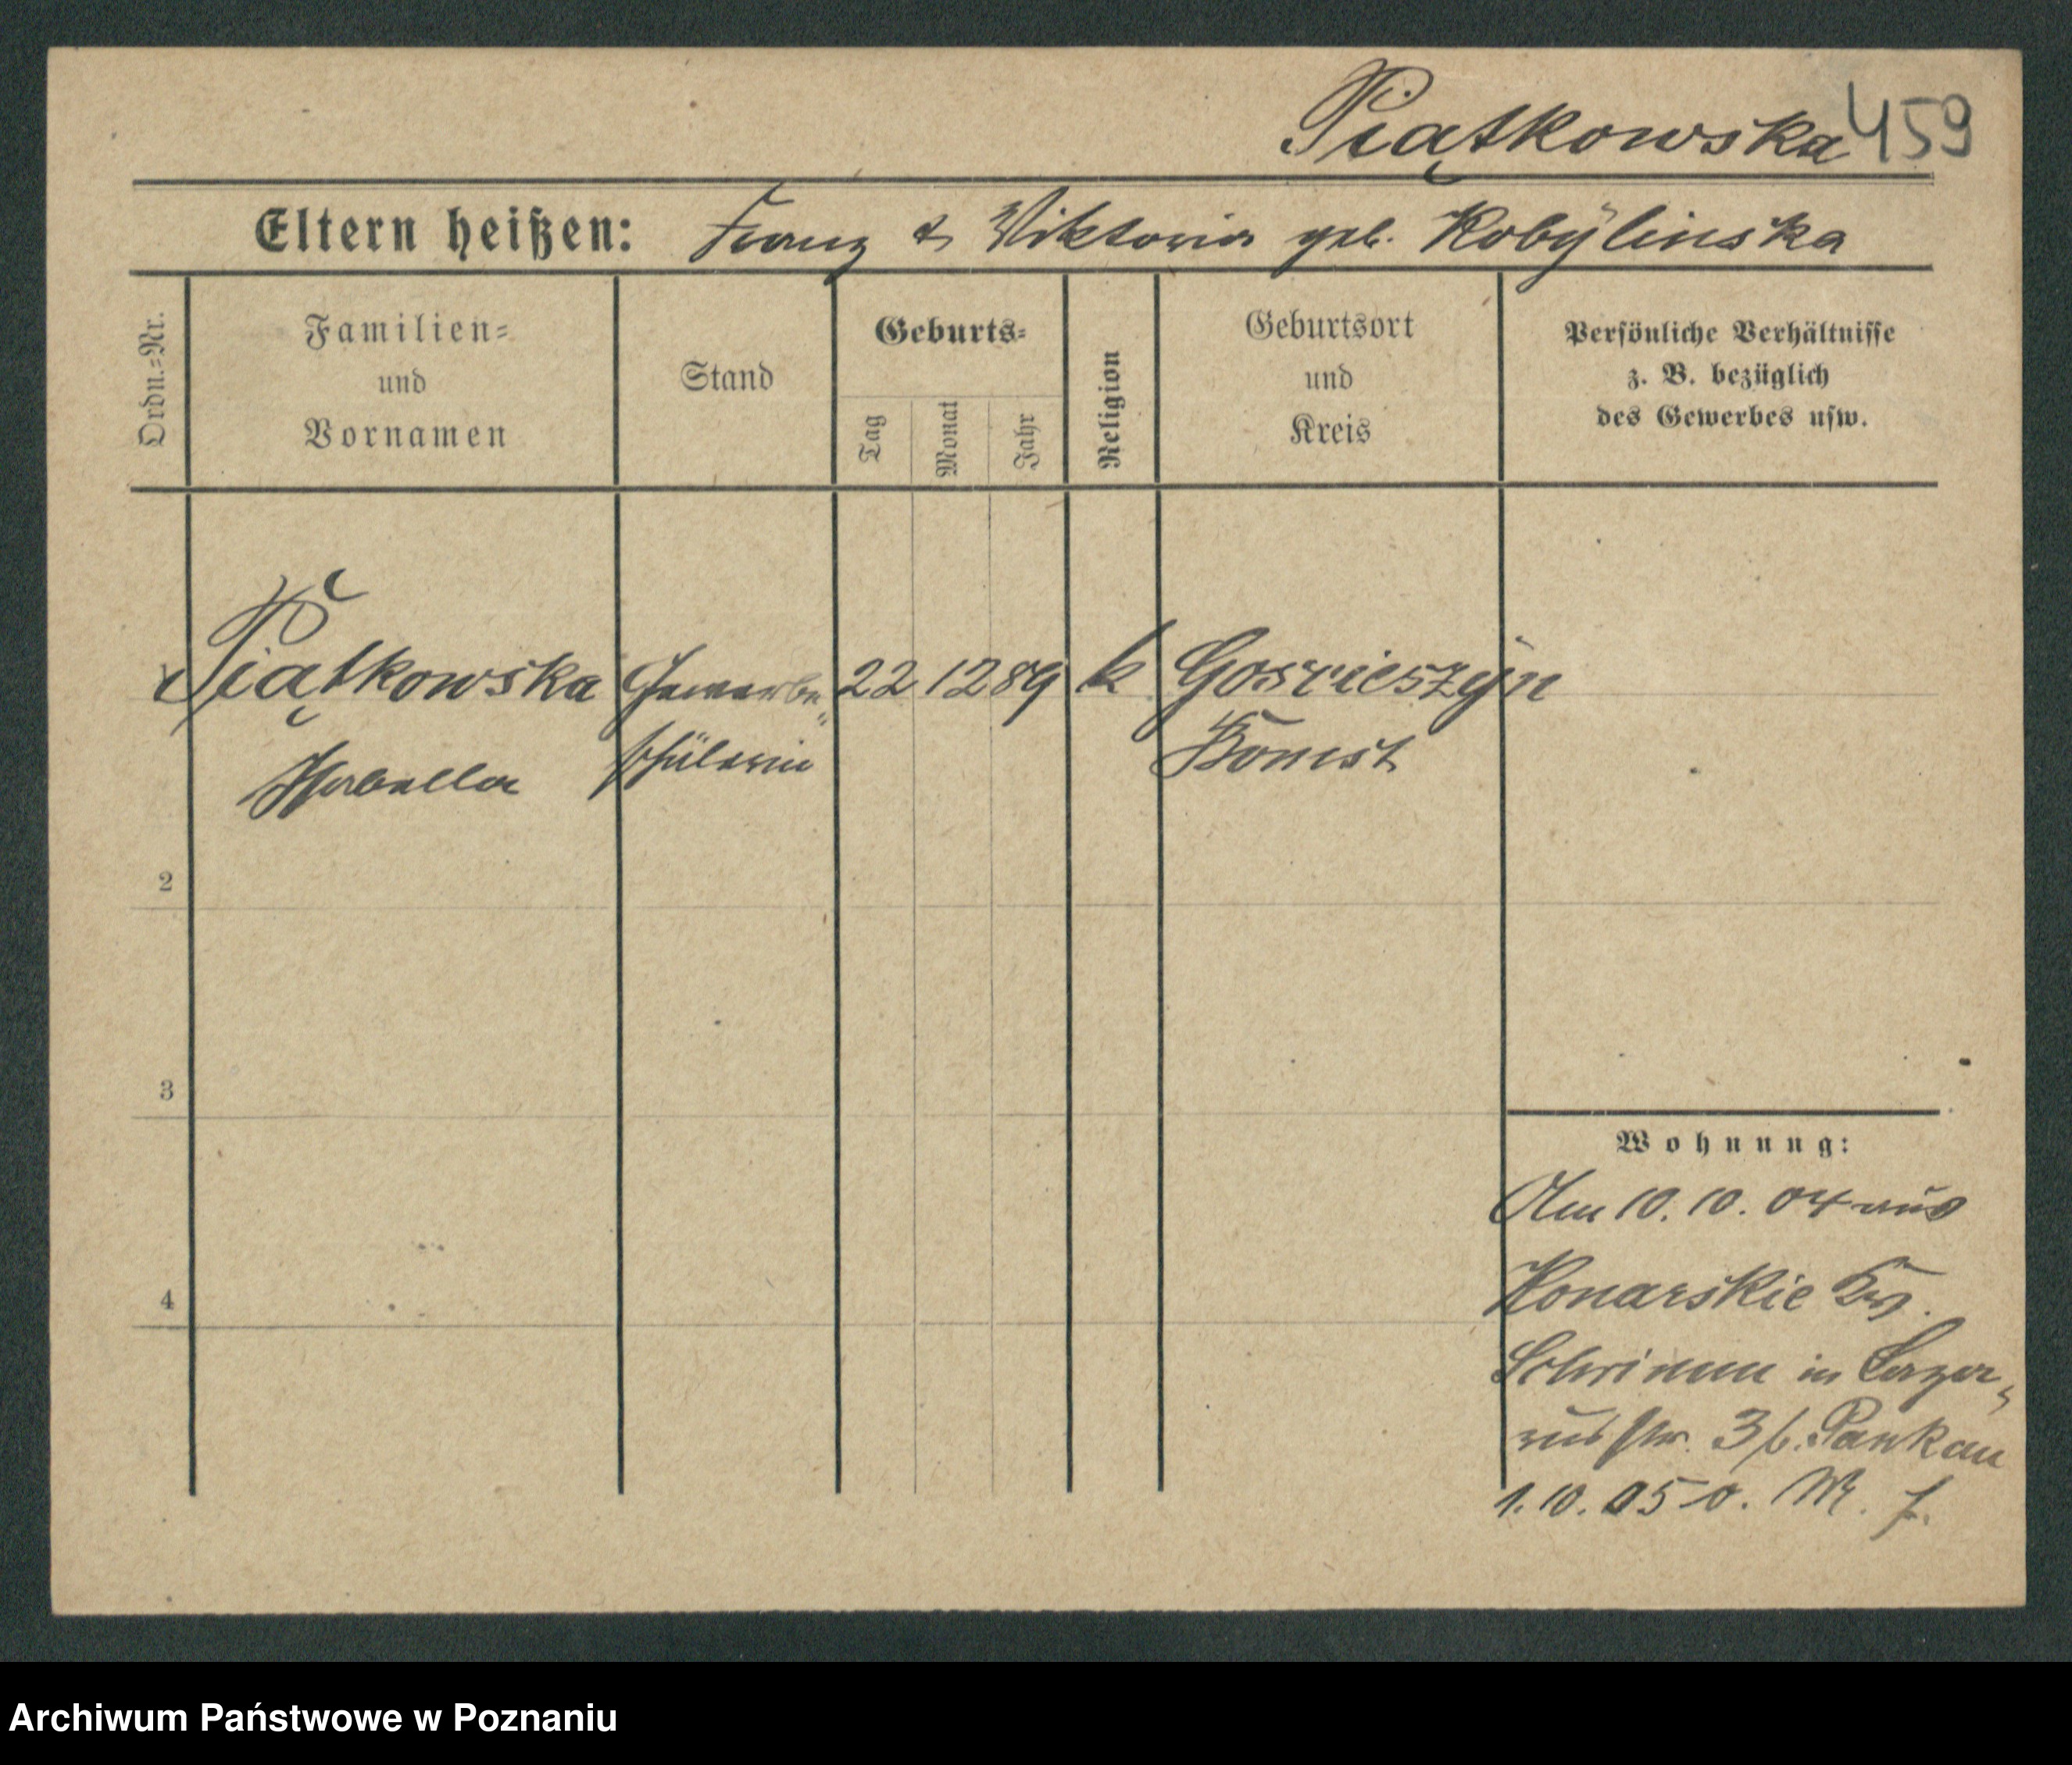 Piątkowska 459
Eltern heißen: Franz & Viktoria geb. Kobÿlinska
Ordn.=Nr.
Familien=
und
Vornamen
Stand
Geburts=
Tag
Monat
Jahr
Religion
Geburtsort
und
Kreis
Persönliche Verhältnisse
z. B. bezüglich
des Gewerbes usw.
1 Piątkowska Gewerbe= 22 12 89 k Goscieszÿn
schülerin Bomst
2
3
4
Wohnung:
Am 10. 10. 04 aus
Konarskie Krs.
Schrimm in Lazar=
usstr. 3 b. Pankau
1. 10. 05 o. M. f.
Archiwum Państwowe w Poznaniu